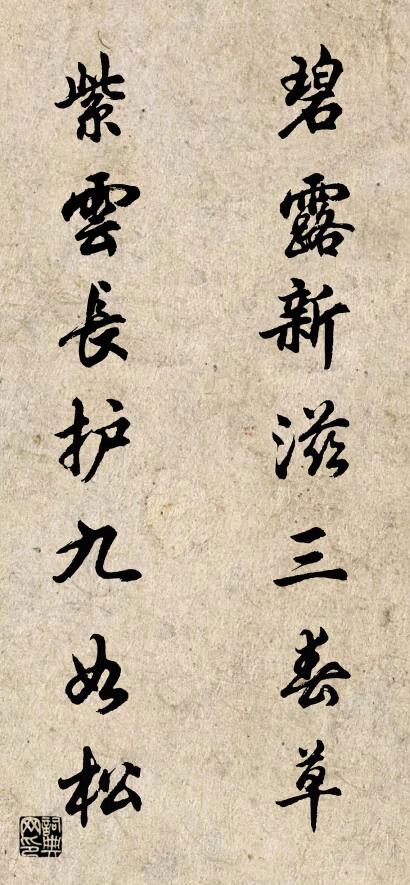 碧露新滋三春草
紫雲長护九如松
詞典網印